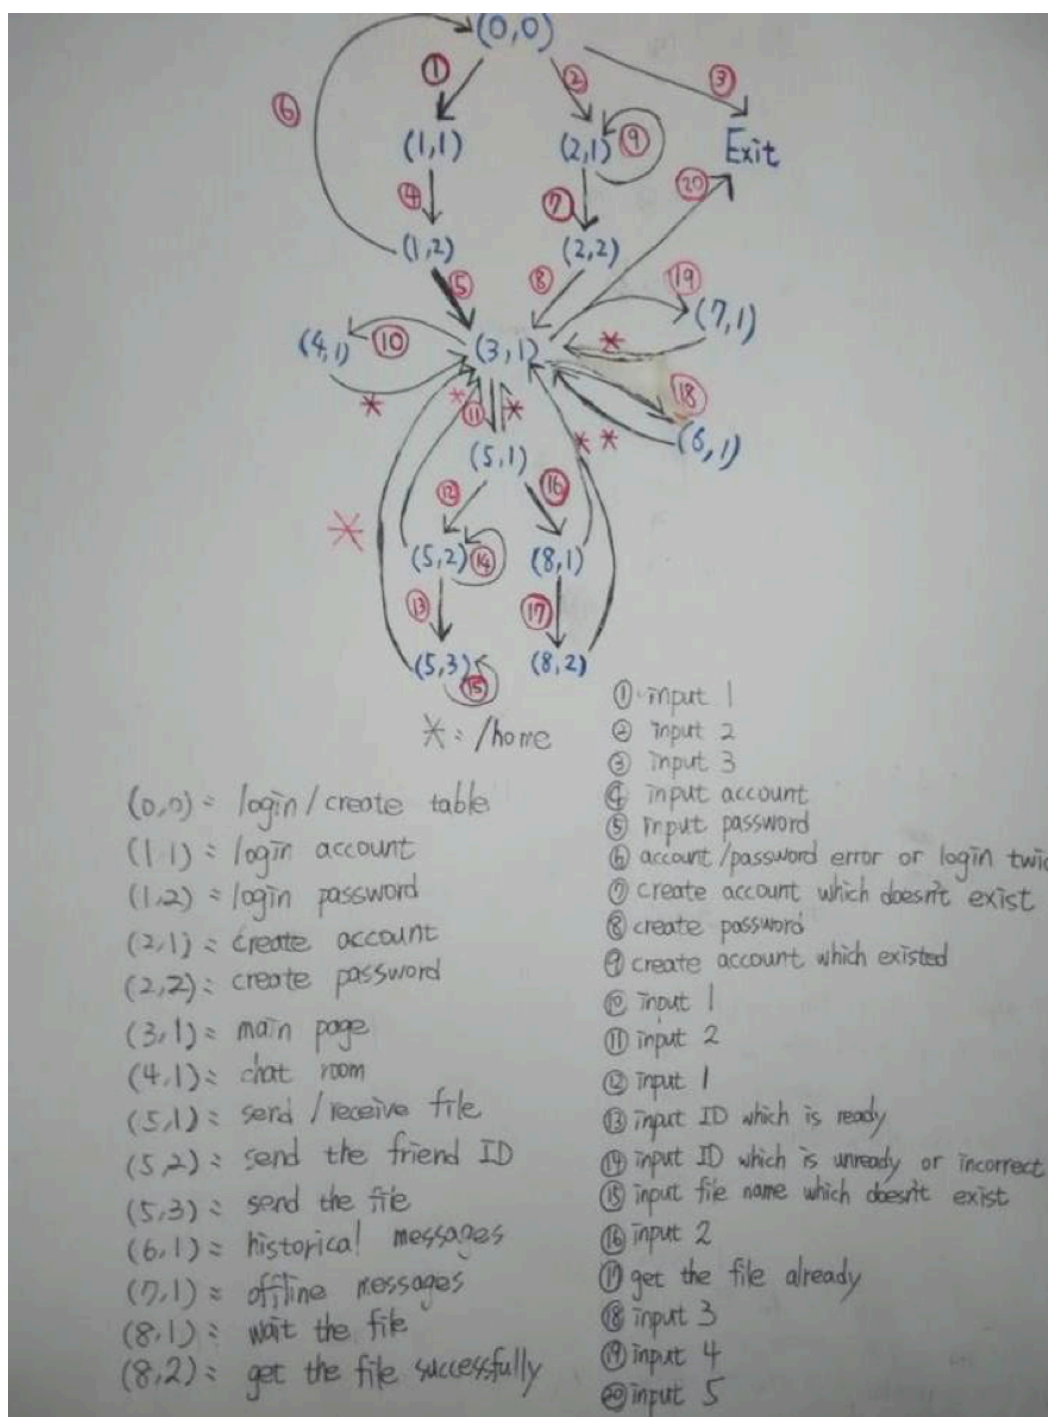 (0,0)
① ② ③
⑥
(1,1) (2,1) ⑨ Exit
④ ⑦ ⑳
(1,2) (2,2)
⑤ ⑧ ⑲
(7,1)
(4,1) ⑩ (3,1) *
* * ⑪ * ⑱
* * (6,1)
(5,1)
⑫ ⑯
*
(5,2) ⑭ (8,1)
⑬ ⑰
(5,3) ⑮ (8,2)
* : /home
(0,0) : login/create table
(1,1) : login account
(1,2) : login password
(2,1) : create account
(2,2) : create password
(3,1) : main page
(4,1) : chat room
(5,1) : send/receive file
(5,2) : send the friend ID
(5,3) : send the file
(6,1) : historical messages
(7,1) : offline messages
(8,1) : wait the file
(8,2) : get the file successfully
① input 1
② input 2
③ input 3
④ input account
⑤ input password
⑥ account/password error or login twic
⑦ create account which doesn't exist
⑧ create password
⑨ create account which existed
⑩ input 1
⑪ input 2
⑫ input 1
⑬ input ID which is ready
⑭ input ID which is unready or incorrect
⑮ input file name which doesn't exist
⑯ input 2
⑰ get the file already
⑱ input 3
⑲ input 4
⑳ input 5